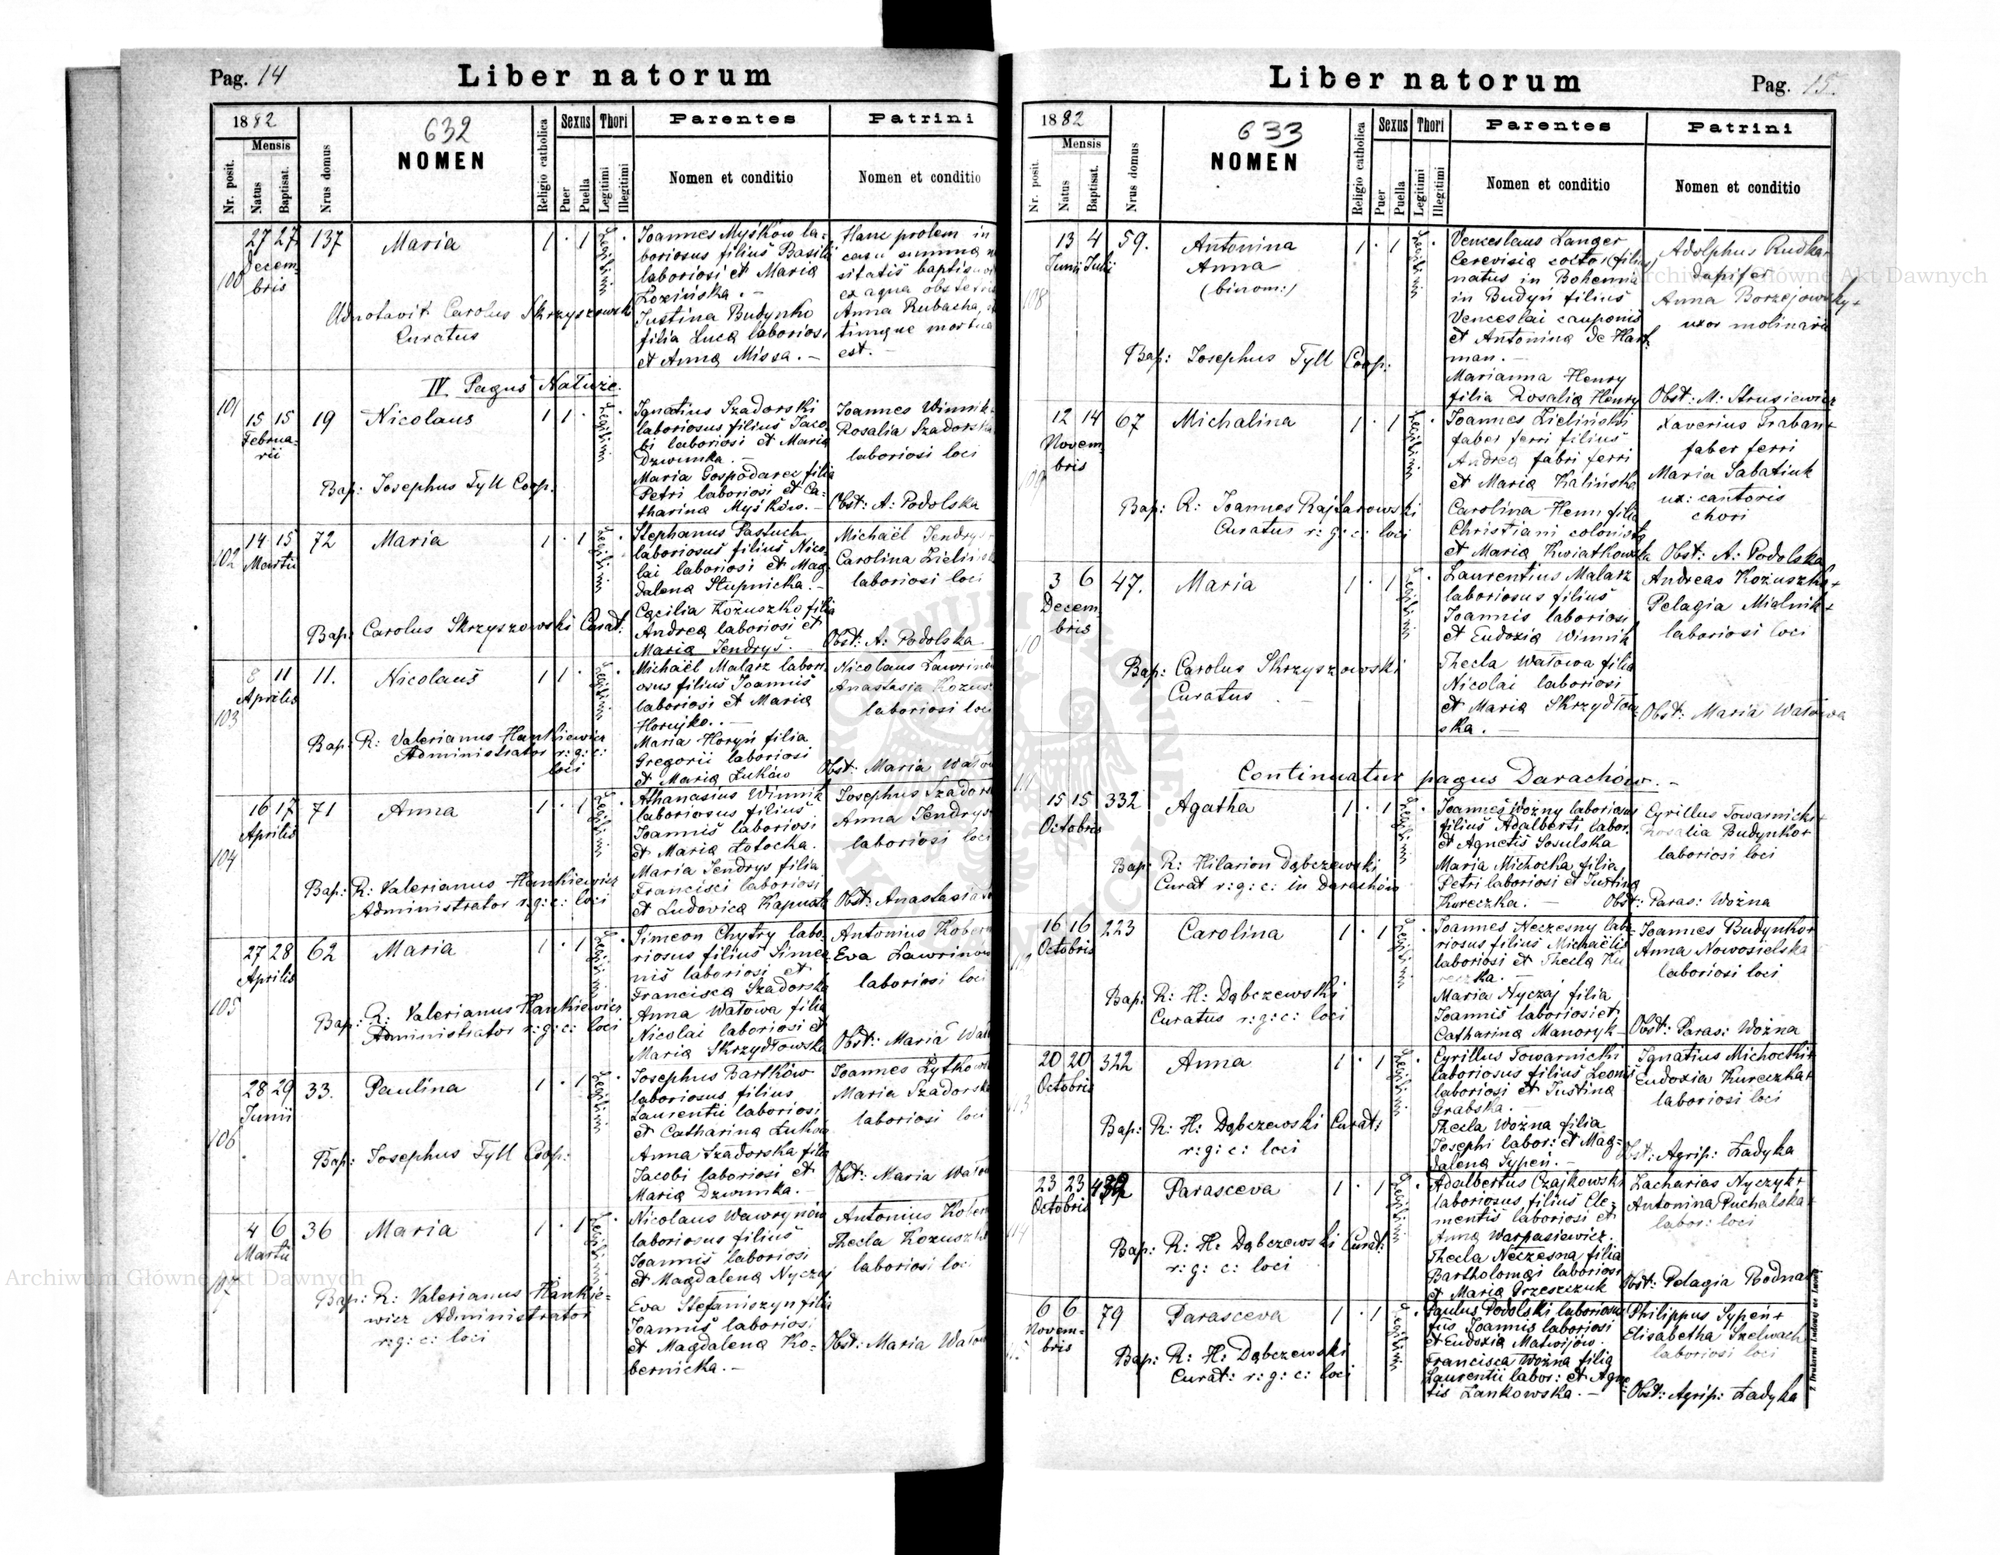 Pag. 14
Liber natorum
1882
Mensis
Nr. posit.
Natus
Baptisat.
Nrus domus
632
NOMEN
Religio catholica
Sexus
Puer
Puella
Thori
Legitimi
Illegitimi
Parentes
Nomen et conditio
Patrini
Nomen et conditio
100
27 27 137 Maria 1 · 1
Decem-
bris
Joannes Myśków la-
boriosus filius Basilii
laboriosi et Maria
Łozińska. —
Justina Budynko
filia Luca laboriosi
et Anna Missa. —
Hanc prolem in
casu summa
sitatis baptis
ex aqua obstetrix
Anna Kubacha,
timque mortua
est. —
Adnotavit Carolus Skrzyszowski
Curatus
IV. Pagus Nałuże.
101
15 15 19 Nicolaus 1 1 ·
Februa-
rii
Ignatius Szadorski
laboriosus filius Jaco-
bi laboriosi et Maria
Dzwinka. —
Maria Gospodarek filia
Petri laboriosi et Ca-
tharina Myśków. —
Joannes Winnik
Rosalia Szadorska
laboriosi loci
Obst: A: Podolska
Bap: Josephus Tyll Coop.
102
14 15 72 Maria 1 · 1
Martii
Stephanus Pastuch
laboriosus filius Nico-
lai laboriosi et Mag-
dalena Słupnicka. —
Cæcilia Kożuszko filia
Andrea laboriosi et
Maria Jendryś.
Michaël Jendrys
Carolina Zielińska
laboriosi loci
Obst: A: Podolska
Bap: Carolus Skrzyszowski Curat:
103
8 11 11. Nicolaus 1 1 ·
Aprilis
Michaël Malarz labori-
osus filius Joannis
laboriosi et Maria
Horujko. —
Maria Horyń filia
Gregorii laboriosi
et Maria Łuków
Nicolaus Lawrin
Anastasia Kozus
laboriosi loci
Obst: Maria Wato
Bap: R: Valerianus Hankiewicz
Administrator r: g: c:
loci
104
16 17 71 Anna 1 · 1
Aprilis
Athanasius Winnik
laboriosus filius
Joannis laboriosi
et Maria Łotocha.
Maria Jendrys filia
Francisci laboriosi
et Ludovica Kapusta
Josephus Szadors
Anna Jendrys
laboriosi loci
Obst: Anastasia
Bap: R: Valerianus Hankiewicz
Administrator r: g: c: loci
105
27 28 62 Maria 1 · 1
Aprilis
Simeon Chytry labo-
riosus filius Simeo-
nis laboriosi et
Francisca Szadorska
Anna Watowa filia
Nicolai laboriosi et
Maria Skrzydłowska
Antonius Kober
Eva Lawrinow
laboriosi loci
Obst: Maria Wat
Bap: R: Valerianus Hankiewicz
Administrator r: g: c: loci
106
28 29 33. Paulina 1 · 1
Junii
Josephus Bartków
laboriosus filius
Laurentii laboriosi
et Catharina Łuków
Anna Szadorska filia
Jacobi laboriosi et
Maria Dzwinka. —
Joannes Lytkow
Maria Szadorska
laboriosi loci
Obst: Maria Wato
Bap: Josephus Tyll Coop:
107
4 6 36 Maria 1 · 1
Martii
Nicolaus Wawryńcia
laboriosus filius
Joannis laboriosi
et Magdalena Nyczaj
Eva Stefaniszyn filia
Joannis laboriosi
et Magdalena Ko-
bernicka. —
Antonius Kober
Thecla Kozuszk
laboriosi loci
Obst: Maria Wato
Bap: R: Valerianus Hankie-
wicz Administrator
r: g: c: loci
Liber natorum
Pag. 15.
1882
Mensis
Nr. posit.
Natus
Baptisat.
Nrus domus
633
NOMEN
Religio catholica
Sexus
Puer
Puella
Thori
Legitimi
Illegitimi
Parentes
Nomen et conditio
Patrini
Nomen et conditio
108
13 4 59. Antonina 1 · 1
Junii Julii Anna
(binom:)
Venceslaus Langer
Cerevisia coctor filius
natus in Bohemia
in Budyń filius
Venceslai cauponis
et Antonina de Hart-
man. —
Marianna Henry
filia Rosalia Henry
Adolphus Rudka
dapifer
Anna Borzejowsky +
uxor molinarii
Obst: M: Strusiewicz
Bap: Josephus Tyll Coop:
109
12 14 67 Michalina 1 · 1
Novem-
bris
Joannes Zieliński
faber ferri filius
Andrea fabri ferri
et Maria Kalińska
Carolina Henn filia
Christiani colonista
et Maria Kwiatkowska
Xaverius Graban +
faber ferri
Maria Sabatiuk
ux: cantoris
chori
Obst: A: Podolska
Bap: R: Joannes Rajtarowski
Curatus r: g: c: loci
3 6 47. Maria 1 · 1
Decem-
bris
Laurentius Malarz
laboriosus filius
Joannis laboriosi
et Eudoxia Winnik
Thecla Watowa filia
Nicolai laboriosi
et Maria Skrzydłow-
ska. —
Andreas Kożuszko +
Pelagia Mialnik +
laboriosi loci
Obst: Maria Watowa
Bap: Carolus Skrzyszowski
Curatus
Continuatur pagus Darachów. —
15 15 332 Agatha 1 · 1
Octobris
Joannes Woźny laboriosus
filius Adalberti labor.
et Agnetis Sosulska
Maria Michocka filia
Petri laboriosi et Justina
Kureczka. —
Cyrillus Towarnicki +
Rosalia Budynko +
laboriosi loci
Obst: Paras: Woźna
Bap: R: Hilarion Dąbczewski
Curat r: g: c: in Darachów
16 16 223 Carolina 1 · 1
Octobris
Joannes Neczesny labo-
riosus filius Michaëlis
laboriosi et Thecla Ku-
reczka. —
Maria Nyczaj filia
Joannis laboriosi et
Catharina Manoryk
Joannes Budynko +
Anna Nowosielska
laboriosi loci
Obst: Paras: Woźna
Bap: R: H: Dąbczewski
Curatus r: g: c: loci
20 20 322 Anna 1 · 1
Octobris
Cyrillus Towarnicki
laboriosus filius Leonis
laboriosi et Justina
Grabska. —
Thecla Woźna filia
Josephi labor: et Mag-
dalena Sypeń. —
Ignatius Michocki +
Eudoxia Kureczka +
laboriosi loci
Obst: Agrip: Ładyka
Bap: R: H: Dąbczewski Curat:
r: g: c: loci
114
23 23 Parasceva 1 · 1
Octobris
Adalbertus Czajkowski
laboriosus filius Cle-
mentis laboriosi et
Anna Warpasiewicz.
Thecla Neczesna filia
Bartholomæi laboriosi
et Maria Grzeszczuk
Zacharias Nyczyk +
Antonina Puchalska +
labor: loci
Obst: Pelagia Rodna
Bap: R: H: Dąbczewski Curat:
r: g: c: loci
6 6 79 Parasceva 1 · 1
Novem-
bris
Paulus Podolski laboriosus
fius Joannis laboriosi
et Eudoxia Matwijów.
Francisca Woźna filia
Laurentii labor: et Agne-
tis Zankowska. —
Philippus Sypeń +
Elisabetha Szelwach
laboriosi loci
Obst: Agrip: Ładyka
Bap: R: H: Dąbczewski
Curat: r: g: c: loci
Z Drukarni Ludowej we Lwowie
Archiwum Główne Akt Dawnych
Archiwum Główne Akt Dawnych